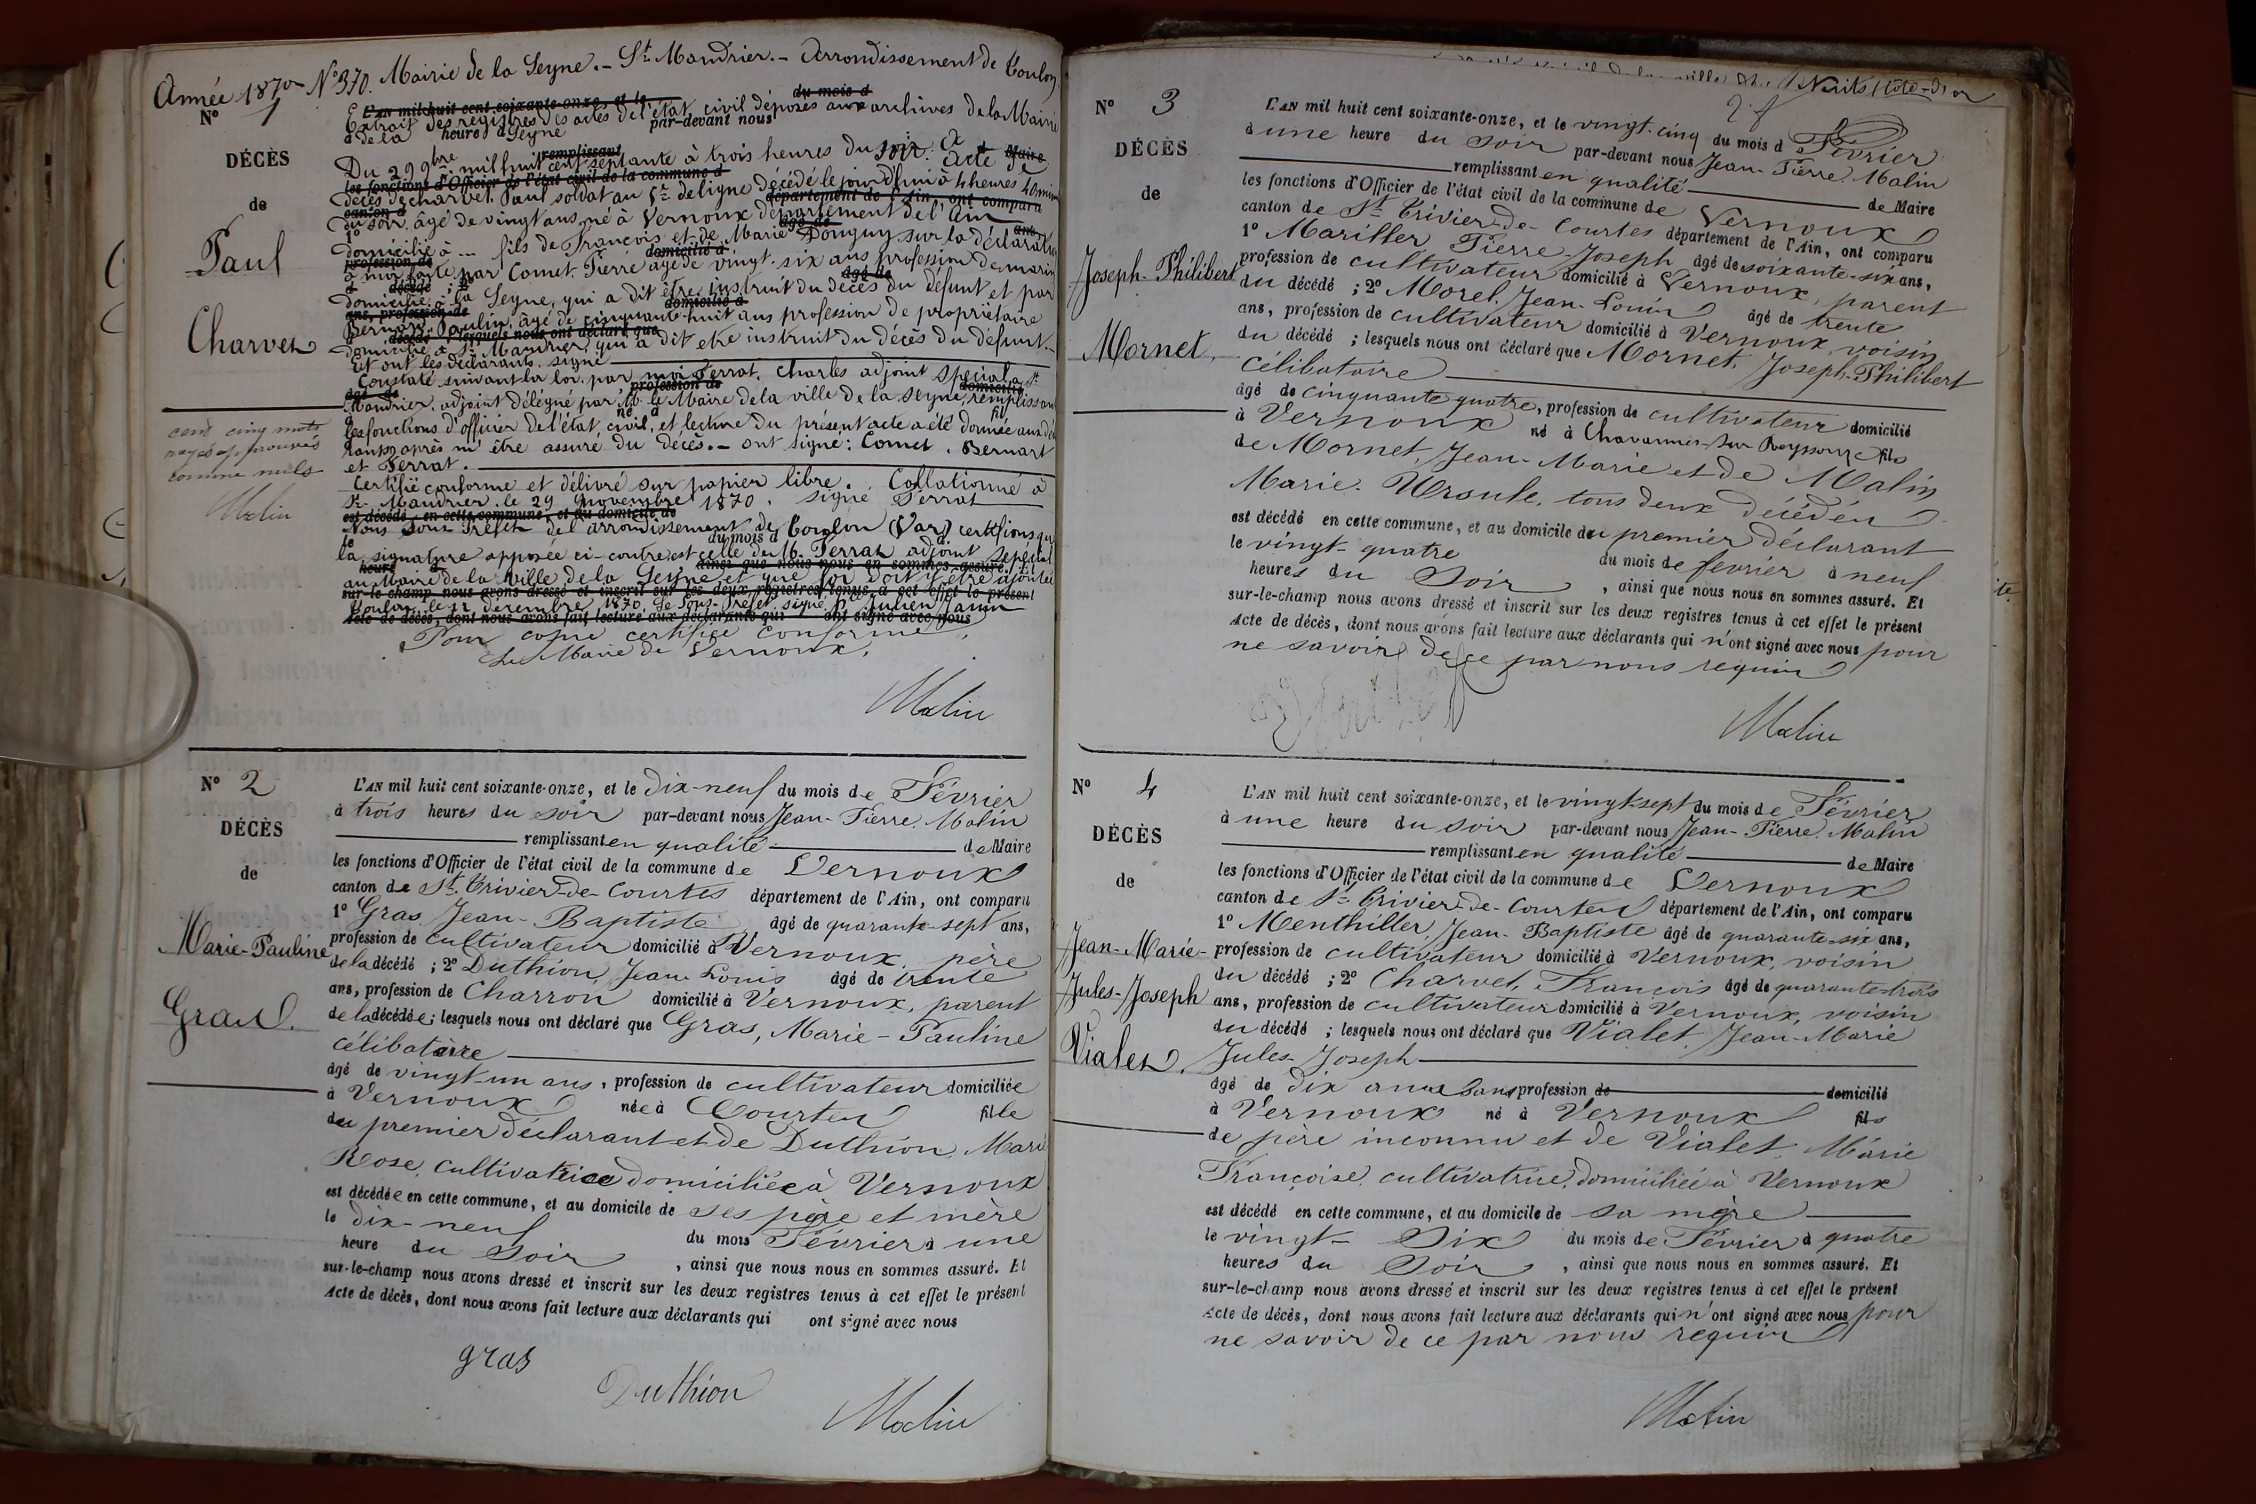 Année 1870 - N° 370. Mairie de la Seyne. - St Mandrier. - Arrondissement de Toulon
N° 1
L'AN mil huit cent soixante-onze, et le du mois d
Extrait des registres des actes de l'état civil déposés aux archives de la Mairie
à heure d par-devant nous
de la Seyne
DÉCÈS
de
Paul
Charvet
remplissant Maire
Du 29 9bre mil huit cent septante à trois heures du soir. Acte de
les fonctions d'Officier de l'état civil de la commune d
décès de Charvet, Paul soldat au 5e de ligne décédé le jour d'hui à 4 heures 40 min
canton d département de l'Ain, ont comparu
du soir âgé de vingt ans, né à Vernoux département de l'Ain
1° âgé de ans,
domicilié à ... fils de François et de Marie Donguy, sur la déclaration
profession de domicilié d
à moi faite par Comet, Pierre âgé de vingt-six ans profession de marin
d décédé ; 2° âgé de
domicilié à la Seyne, qui a dit être instruit du décès du défunt et par
ans, profession de domicilié d
Bernard Paulin, âgé de cinquante-huit ans profession de propriétaire
d décédé ; lesquels nous ont déclaré que
domicilié à St Mandrier, qui a dit etre instruit du décès du défunt.
Et ont les déclarants signé
Constaté suivant la loi par moi Ferrat, Charles adjoint Spécial à St
âgé de profession de domicilié
Mandrier, adjoint délégué par M. le Maire de la ville de la Seyne, remplissant
à né à fil
les fonctions d'officier de l'état civil, et lecture du présent acte a été donnée aux dé
rants, après m'être assuré du décès. - ont signé : Comet, Bernart
et Ferrat.
Certifié conforme et délivré sur papier libre. Collationné à
St Mandrier, le 29 Novembre 1870. Signé Ferrat
est décédé en cette commune, et au domicile de
Nous Sous Préfet de l'arrondissement de Toulon (Var) certifions que
le du mois d
la signature apposée ci-contre est celle de M. Ferrat adjoint spécial
heure d ainsi que nous nous en sommes assuré. Et
au Maire de la Ville de la Seyne et que foi doit y être ajoutée
sur-le-champ nous avons dressé et inscrit sur les deux registres tenus à cet effet le présent
Toulon, le 12 décembre 1870. Le Sous-Préfet signé Julien Janin
Acte de décès, dont nous avons fait lecture aux déclarants qui ont signé avec nous
Pour copie certifiée conforme,
Le Maire de Vernoux,
Malin
cent cinq mots
rayés approuvés
comme nuls
Malin
N° 2
DÉCÈS
de
Marie-Pauline
Gras.
L'AN mil huit cent soixante-onze, et le dix-neuf du mois de Février
à trois heures du soir par-devant nous Jean-Pierre Malin
remplissant en qualité de Maire
les fonctions d'Officier de l'état civil de la commune de Vernoux
canton de St Trivier-de-Courtes département de l'Ain, ont comparu
1° Gras Jean-Baptiste âgé de quarante-sept ans,
profession de cultivateur domicilié à Vernoux, père
de la décédé ; 2° Duthion, Jean-Louis âgé de trente
ans, profession de Charron domicilié à Vernoux, parent
de la décédée ; lesquels nous ont déclaré que Gras, Marie-Pauline
célibataire
âgé de vingt-un ans, profession de cultivateur domiciliée
à Vernoux née à Courtes fille
du premier déclarant et de Duthion, Marie
Rose, cultivatrice domiciliée à Vernoux
est décédée en cette commune, et au domicile de ses père et mère
le dix-neuf du mois Février à une
heure du soir , ainsi que nous nous en sommes assuré. Et
sur-le-champ nous avons dressé et inscrit sur les deux registres tenus à cet effet le présent
Acte de décès, dont nous avons fait lecture aux déclarants qui ont signé avec nous
gras
Duthion
Malin
Nuits (Côte-d'or
N° 3
DÉCÈS
de
Joseph-Philibert
Mornet.
L'AN mil huit cent soixante-onze, et le vingt-cinq du mois de Février
à une heure du soir par-devant nous Jean-Pierre Malin
remplissant en qualité de Maire
les fonctions d'Officier de l'état civil de la commune de Vernoux
canton de St Trivier-de-Courtes département de l'Ain, ont comparu
1° Mariller Pierre-Joseph âgé de soixante-six ans,
profession de cultivateur domicilié à Vernoux, parent
du décédé ; 2° Morel, Jean-Louis âgé de trente
ans, profession de cultivateur domicilié à Vernoux, voisin
du décédé ; lesquels nous ont déclaré que Mornet, Joseph-Philibert
célibataire
âgé de cinquante quatre, profession de cultivateur domicilié
à Vernoux né à Chavannes-sur-Reyssouze fils
de Mornet, Jean-Marie et de Malin
Marie-Ursule, tous deux décédés
est décédé en cette commune, et au domicile du premier déclarant
le vingt-quatre du mois de fevrier à neuf
heures du Soir , ainsi que nous nous en sommes assuré. Et
sur-le-champ nous avons dressé et inscrit sur les deux registres tenus à cet effet le présent
Acte de décès, dont nous avons fait lecture aux déclarants qui n'ont signé avec nous pour
ne savoir de ce par nous requis
Malin
N° 4
DÉCÈS
de
Jean-Marie-
Jules-Joseph
Vialet.
L'AN mil huit cent soixante-onze, et le vingt-sept du mois de Février
à une heure du soir par-devant nous Jean-Pierre Malin
remplissant en qualité de Maire
les fonctions d'Officier de l'état civil de la commune de Vernoux
canton de St Trivier-de-Courtes département de l'Ain, ont comparu
1° Menthiller, Jean-Baptiste âgé de quarante-six ans,
profession de cultivateur domicilié à Vernoux, voisin
du décédé ; 2° Charvet, François âgé de quarante-trois
ans, profession de cultivateur domicilié à Vernoux, voisin
du décédé ; lesquels nous ont déclaré que Vialet, Jean-Marie
Jules-Joseph
âgé de dix ans Sans profession de domicilié
à Vernoux né à Vernoux fils
de père inconnu et de Vialet, Marie
Françoise, cultivatrice, domiciliée à Vernoux
est décédé en cette commune, et au domicile de sa mère
le vingt-Six du mois de Février à quatre
heures du Soir , ainsi que nous nous en sommes assuré. Et
sur-le-champ nous avons dressé et inscrit sur les deux registres tenus à cet effet le présent
Acte de décès, dont nous avons fait lecture aux déclarants qui n'ont signé avec nous pour
ne savoir de ce par nous requis
Malin